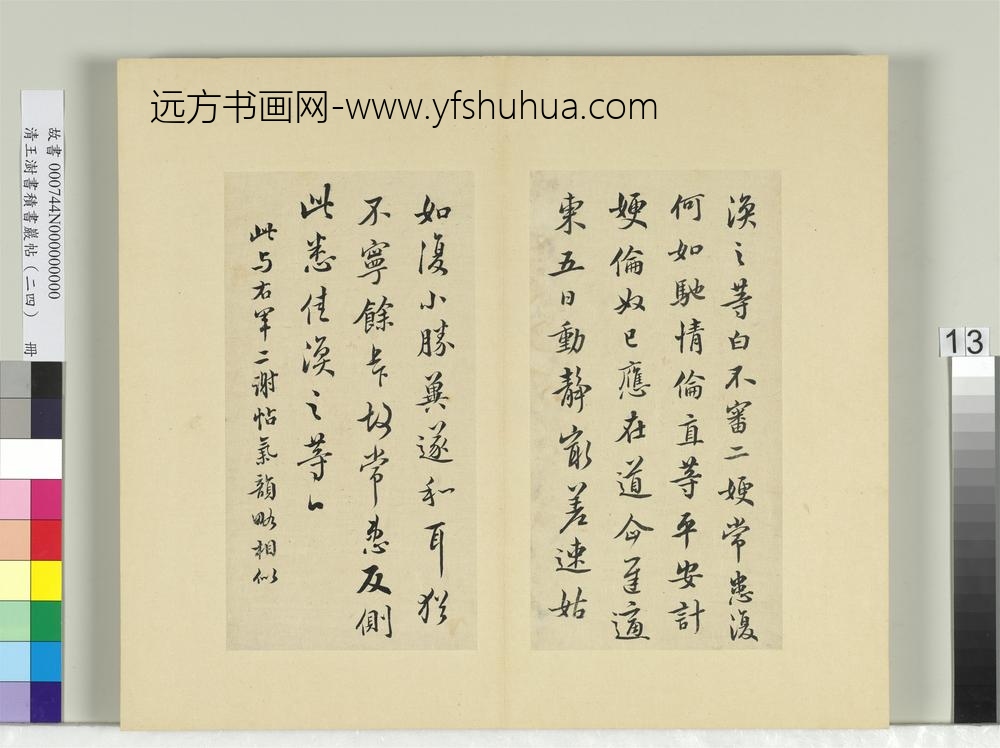 远方书画网-www.yfshuhua.com
渙之等白不審二嫂常患復
何如馳情倫直等平安計
嫂倫奴已應在道企遲適
東五日動靜最差速姑
如復小勝冀遂和耳猶
不寧餘上下故常患反側
此悉佳渙之等白
此与右軍二謝帖氣韻略相似
故書 000744N000000000
清王澍書積書巖帖（二四） 冊
13